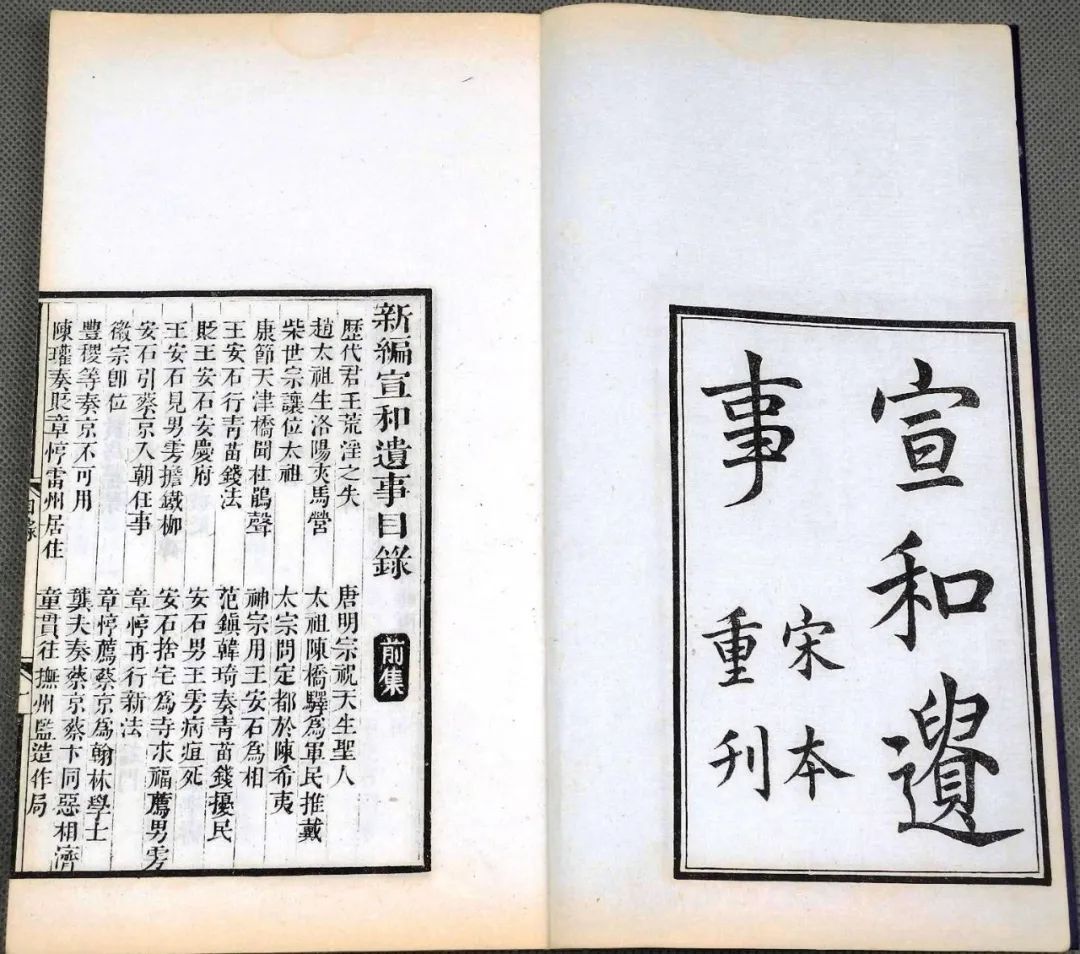 宣和遺
事
宋本
重刊
新編宣和遺事目錄 前集
歷代君王荒淫之失 唐明宗祝天生聖人
趙太祖生洛陽夾馬營 太祖陳橋驛爲軍民推戴
柴世宗讓位太祖 太宗問定都於陳希夷
康節天津橋聞杜鵑聲 神宗用王安石爲相
王安石行青苗錢法 范鎭韓琦奏青苗錢擾民
貶王安石安慶府 安石男王雱病疽死
王安石見男雱擔鐵枷 安石捨宅爲寺求福薦男雱
安石引蔡京入朝任事 章惇再行新法
徽宗卽位 章惇薦蔡京爲翰林學士
豐稷等奏京不可用 龔夫奏蔡京蔡卞同惡相濟
陳瓘奏貶章惇雷州居住 童貫往撫州監造作局
目錄